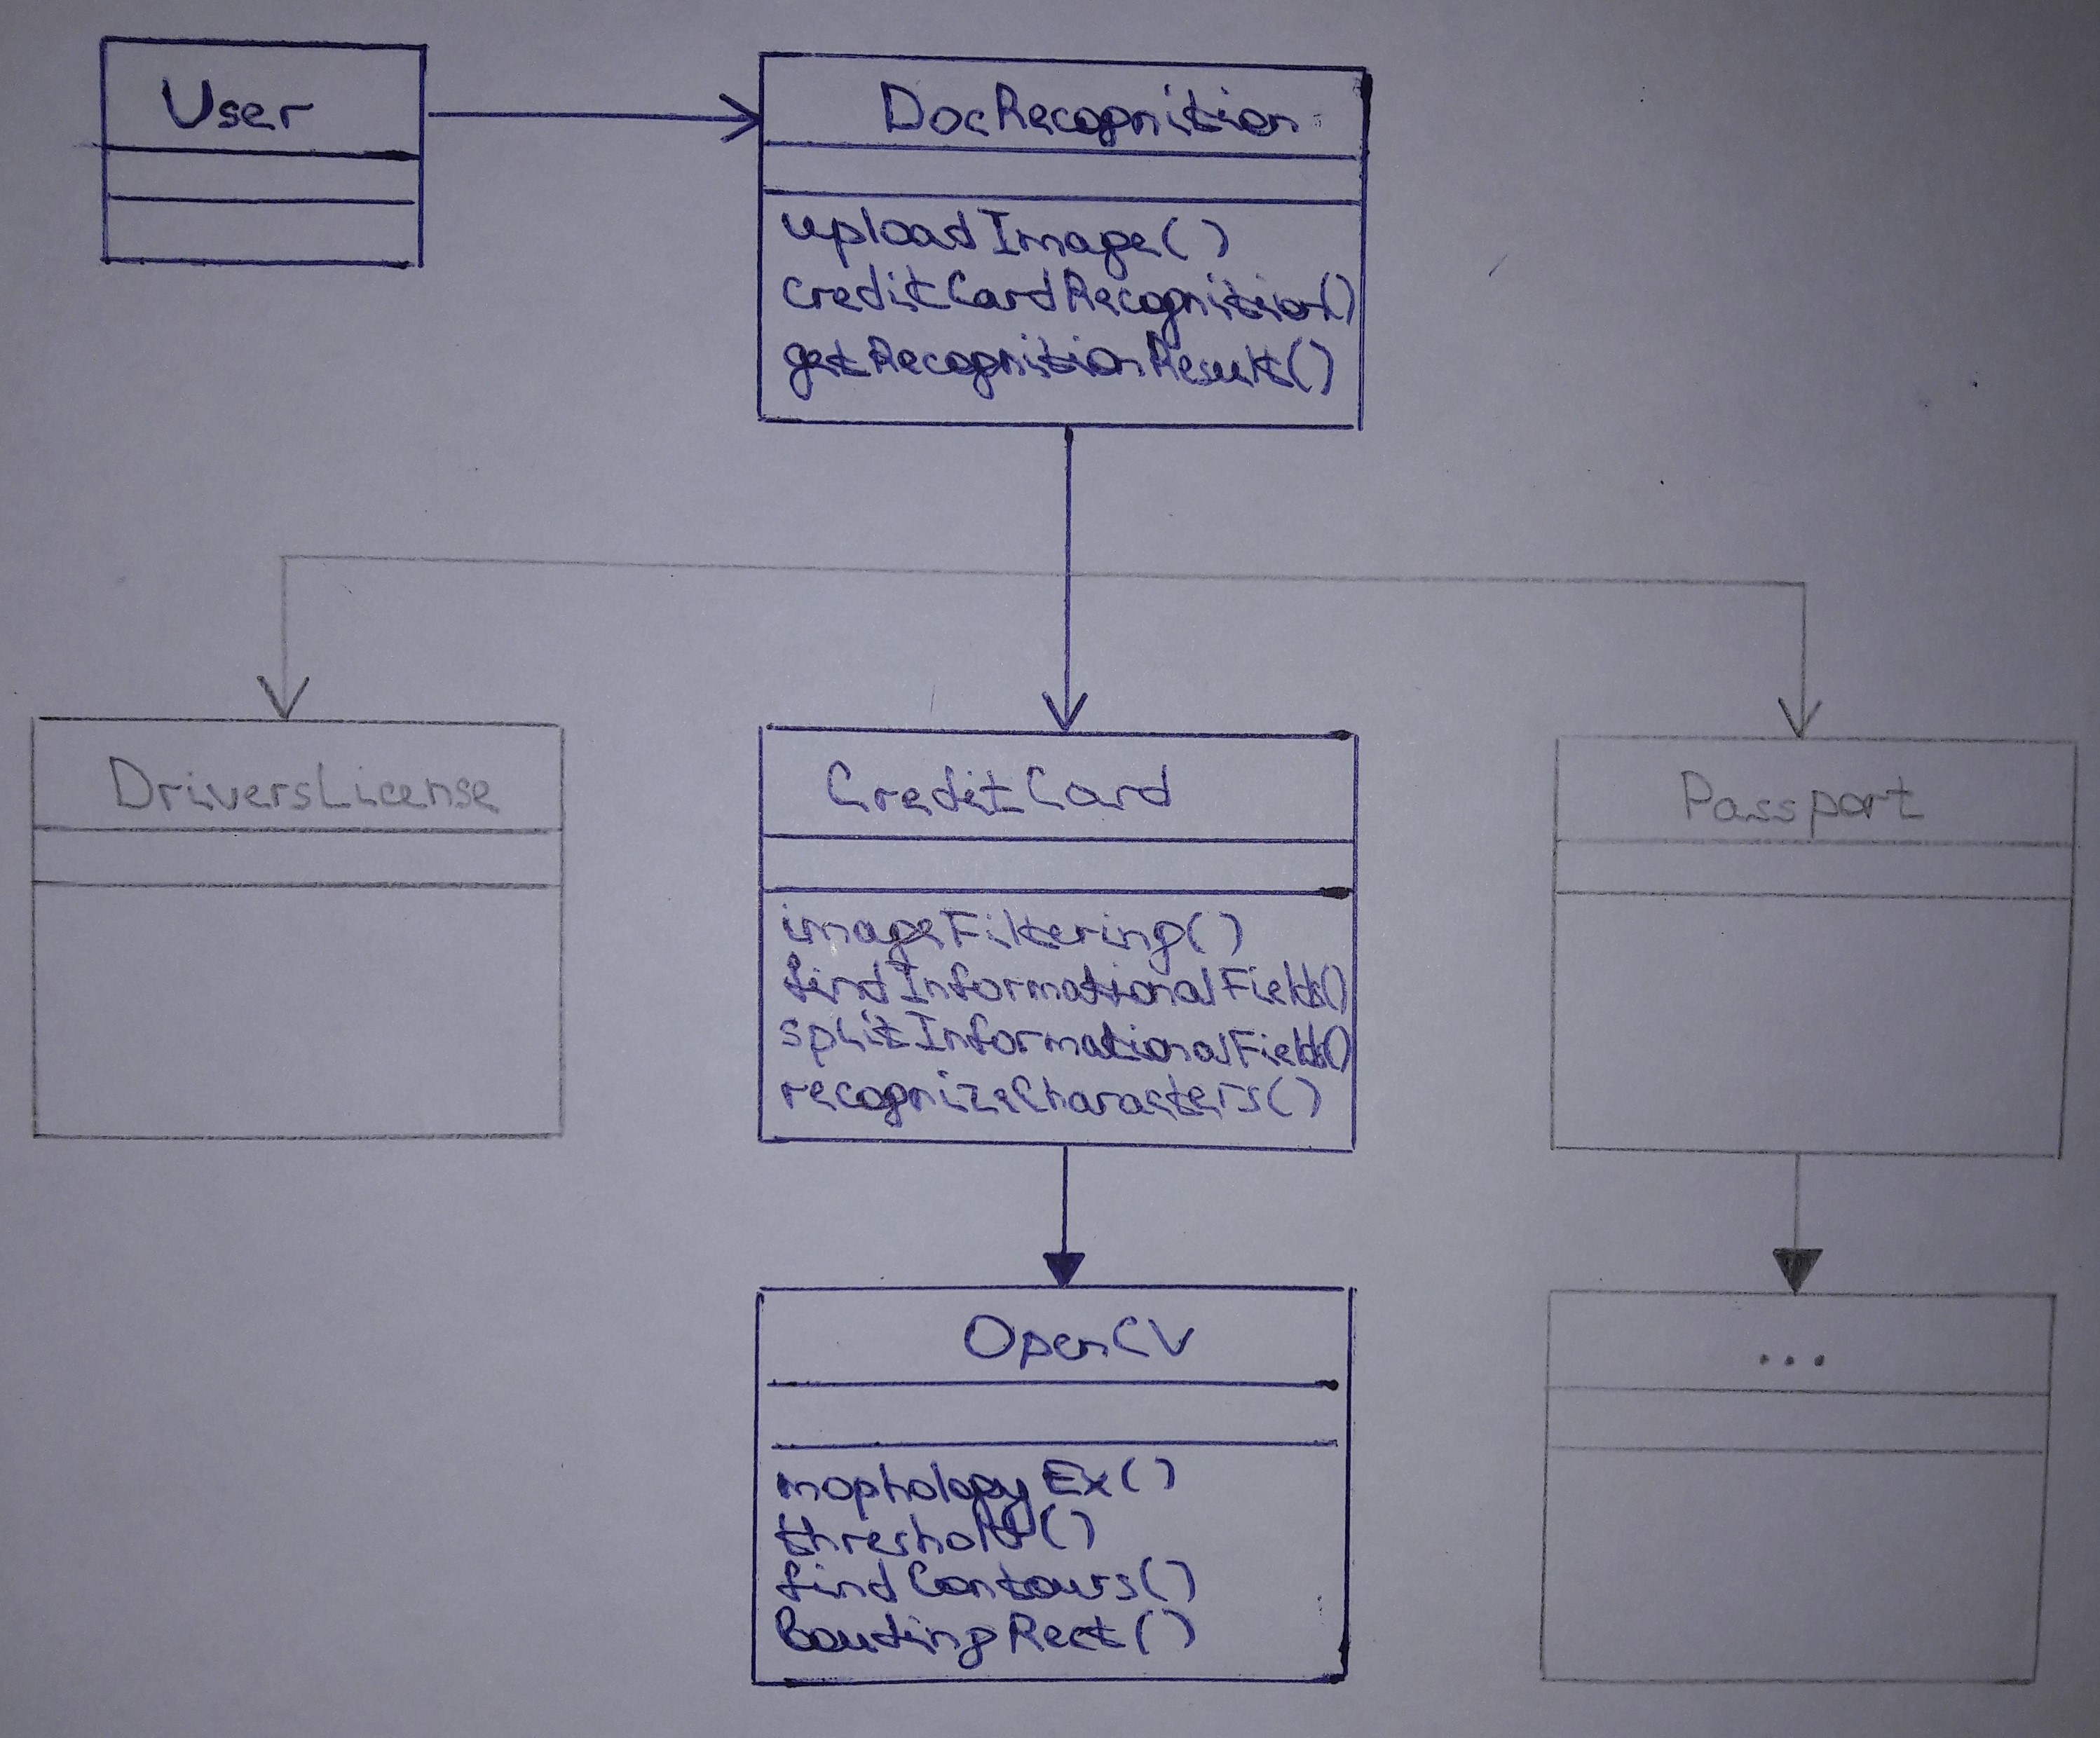 User
DocRecognition
uploadImage()
creditCardRecognition()
getRecognitionResult()
DriversLicense
CreditCard
Passport
imageFiltering()
findInformationalField()
splitInformationalField()
recognizeCharacters()
OpenCV
...
mophologyEx()
threshold()
findContours()
boudingRect()